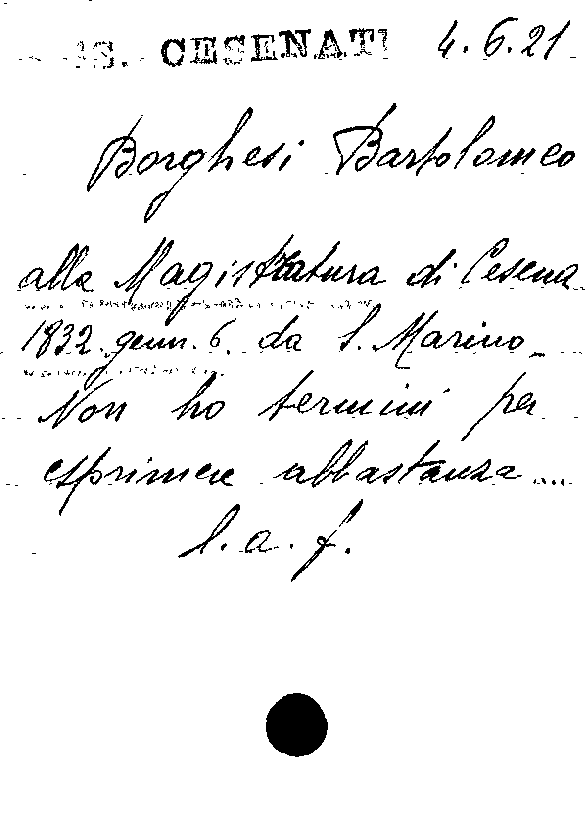 S. CESENATI 4.6.21
Borghesi Bartolomeo
alla Magistratura di Cesena
1832. genn. 6. da S. Marino_
Non ho termini per
esprimere abbastanza....
l. a. f.